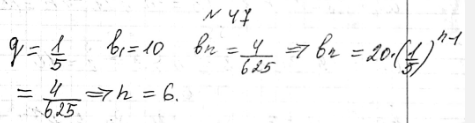 № 47
q = 1/5 b₁ = 10 bₙ = 4/625 ⇒ bₙ = 20·(1/5)ⁿ⁻¹
= 4/625 ⇒ n = 6.